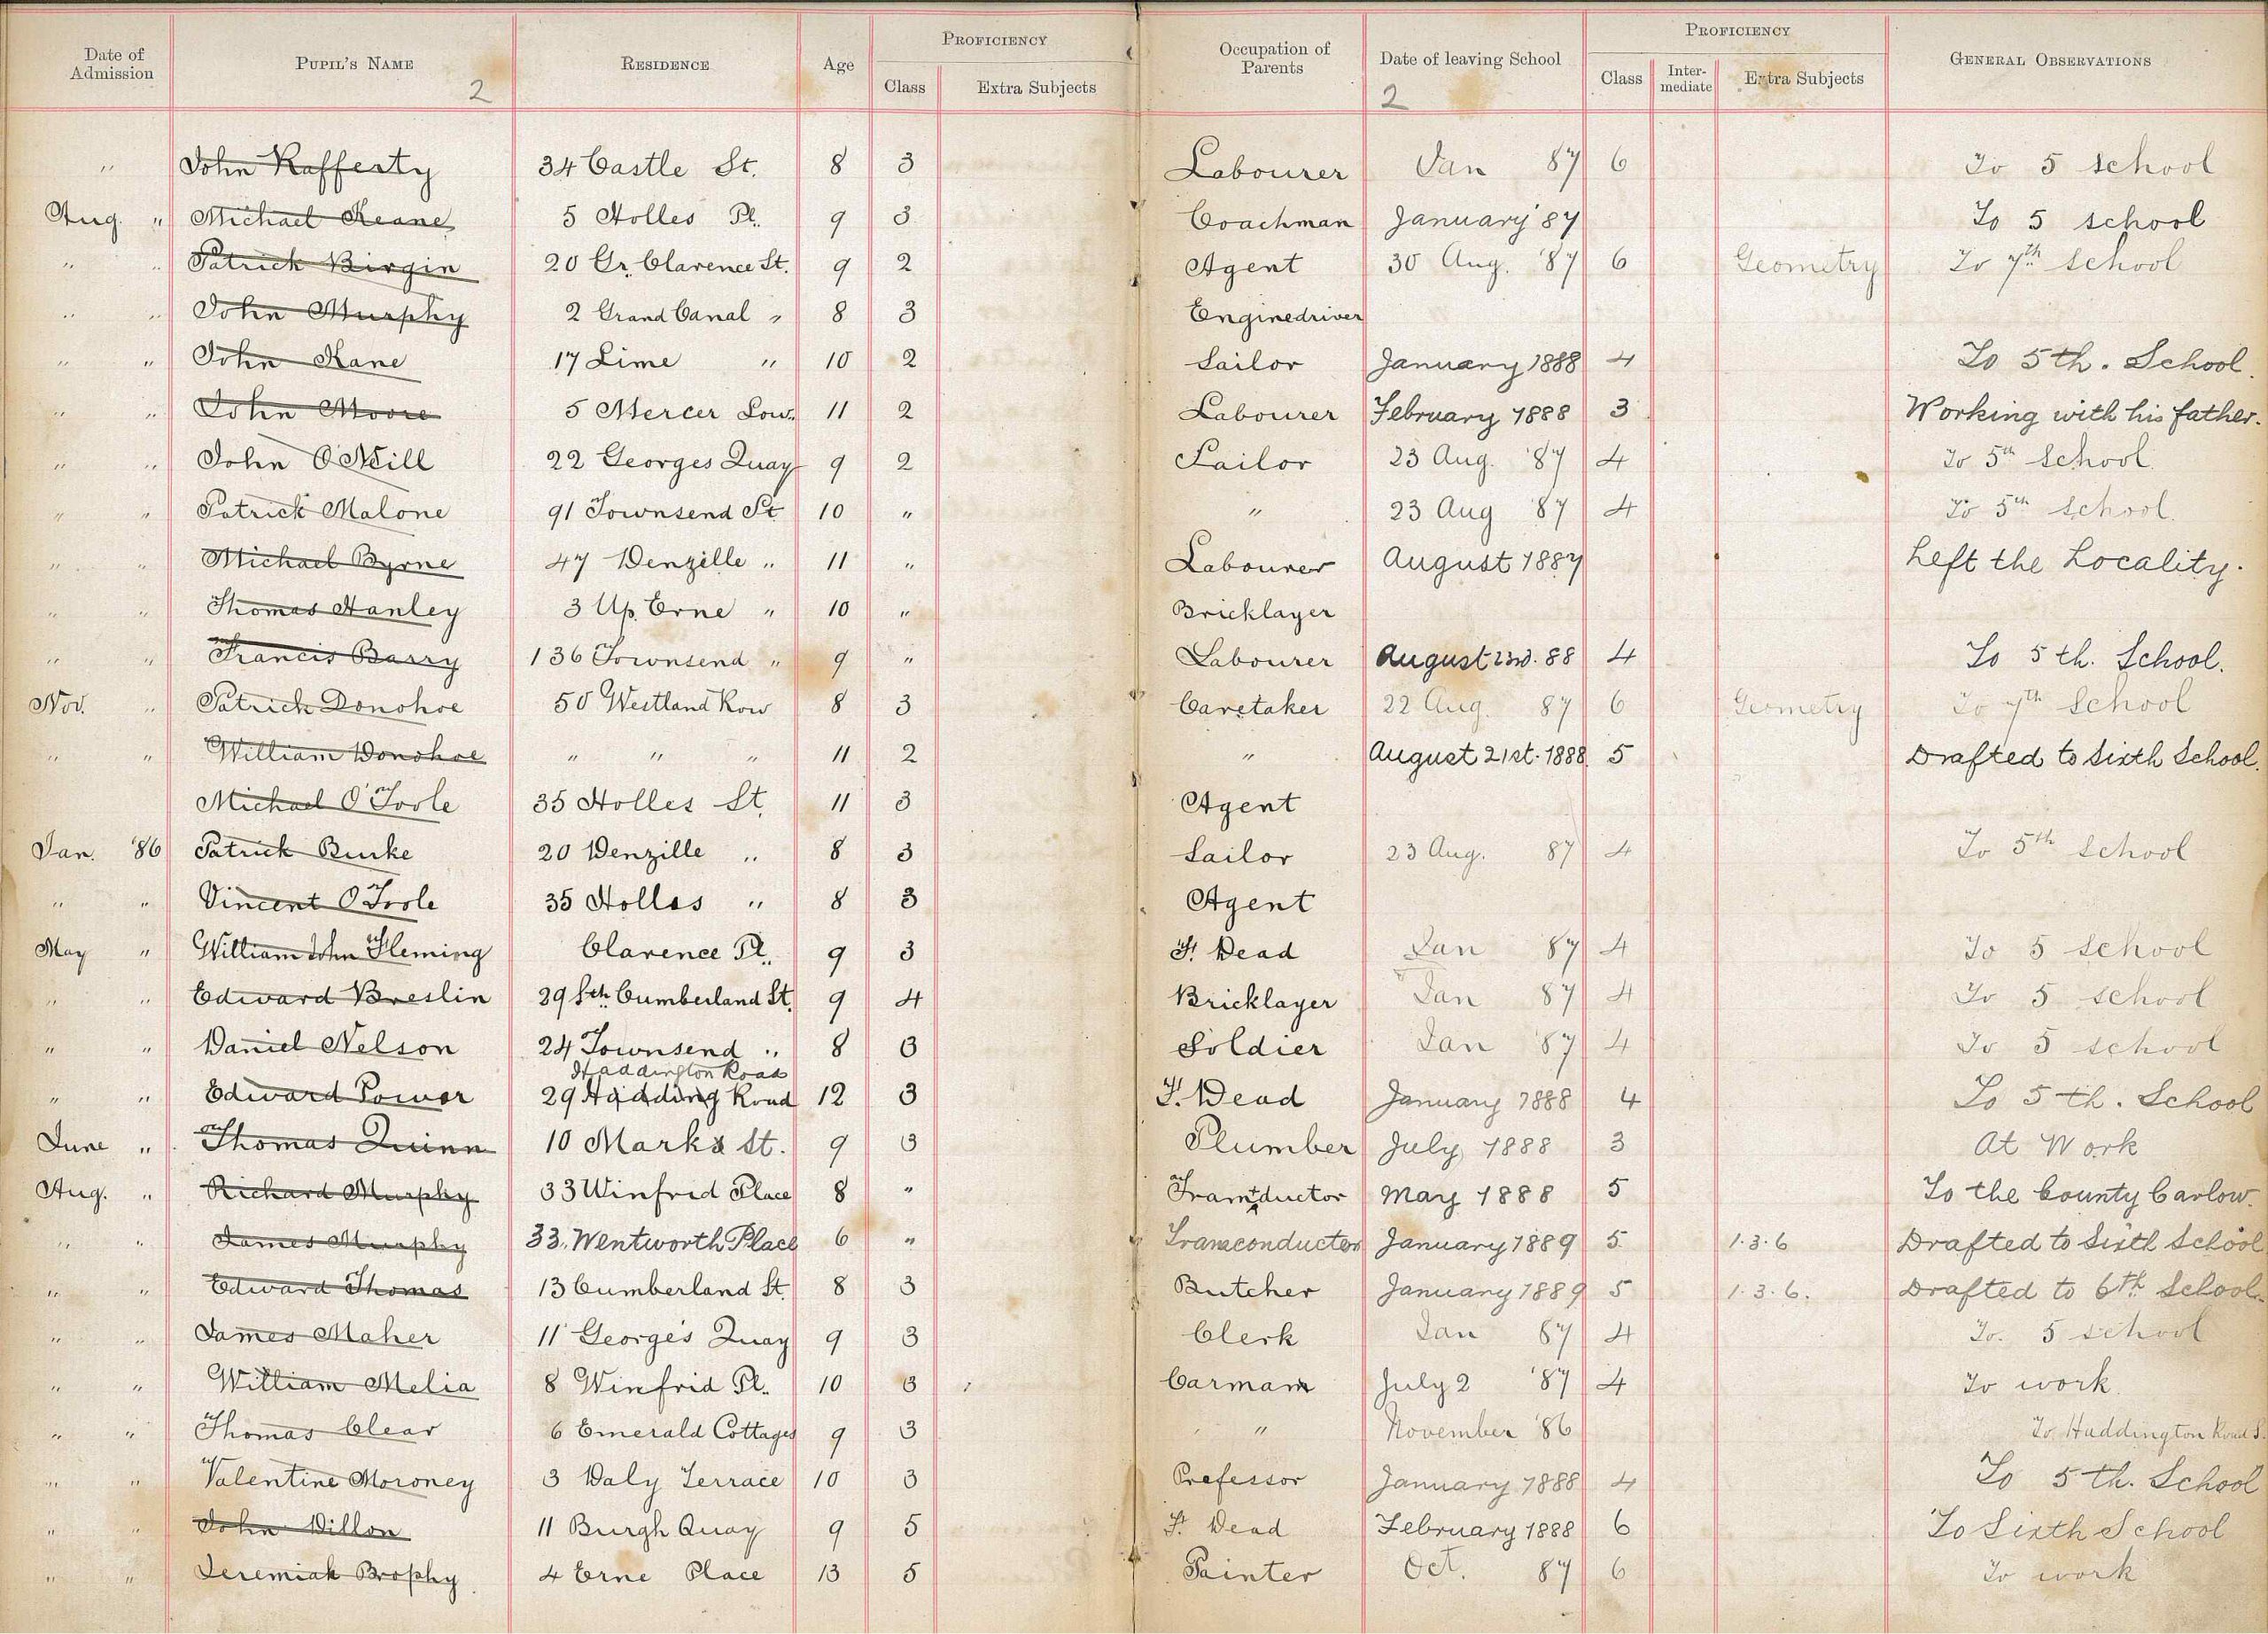 Date of Admission PUPIL'S NAME RESIDENCE Age PROFICIENCY Class Extra Subjects Occupation of Parents Date of leaving School PROFICIENCY Class Inter-mediate Extra Subjects GENERAL OBSERVATIONS
2 2
" John Rafferty 34 Castle St. 8 3 Labourer Jan 87 6 To 5 School
Aug. " Michael Keane 5 Holles Pl. 9 3 Coachman January '87 To 5 school
" " Patrick Birgin 20 Gr. Clarence St. 9 2 Agent 30 Aug. '87 6 Geometry To 7th School
" " John Murphy 2 Grand Canal " 8 3 Enginedriver
" " John Kane 17 Lime " 10 2 Sailor January 1888 4 To 5th. School.
" " John Moore 5 Mercer Low. 11 2 Labourer February 1888 3 Working with his father.
" " John O'Neill 22 Georges Quay 9 2 Sailor 23 Aug. '87 4 To 5th School.
" " Patrick Malone 91 Townsend St 10 " " 23 Aug '87 4 To 5th School.
" " Michael Byrne 47 Denzille " 11 " Labourer August 1887 Left the Locality.
" " Thomas Hanley 3 Up. Erne " 10 " Bricklayer
" " Francis Barry 136 Townsend " 9 " Labourer August 23rd. 88 4 To 5th. School.
Nov. " Patrick Donohoe 50 Westland Row 8 3 Caretaker 22 Aug. 87 6 Geometry To 7th School
" " William Donohoe " " " 11 2 " August 21st. 1888 5 Drafted to Sixth School.
Michael O'Toole 35 Holles St. 11 3 Agent
Jan. '86 Patrick Burke 20 Denzille " 8 3 Sailor 23 Aug. 87 4 To 5th School
" " Vincent O'Toole 35 Holles " 8 3 Agent
May " William John Fleming Clarence Pl. 9 3 F. Dead Jan '87 4 To 5 School
" " Edward Breslin 29 Sth. Cumberland St. 9 4 Bricklayer Jan 87 4 To 5 School
" " Daniel Nelson 24 Townsend " 8 3 Soldier Jan '87 4 To 5 school
Haddington Road
" " Edward Power 29 Hadding Road 12 3 F. Dead January 1888 4 To 5th. School
June " Thomas Quinn 10 Marks St. 9 3 Plumber July 1888 3 At Work
Aug. " Richard Murphy 33 Winfrid Place 8 " Tramductor May 1888 5 To the County Carlow.
" " James Murphy 33. Wentworth Place 6 " Tramconductor January 1889 5 1.3.6 Drafted to Sixth School
" " Edward Thomas 13 Cumberland St. 8 3 Butcher January 1889 5 1.3.6. Drafted to 6th School.
" " James Maher 11 George's Quay 9 3 Clerk Jan 87 4 To. 5 school
" " William Melia 8 Winfrid Pl. 10 3 Carman July 2 '87 4 To work.
" " Thomas Clear 6 Emerald Cottages 9 3 " November '86 To Haddington Road S.
" " Valentine Moroney 3 Daly Terrace 10 3 Professor January 1888 4 To 5th. School
" " John Dillon 11 Burgh Quay 9 5 F. Dead February 1888 6 To Sixth School
" " Jeremiah Brophy 4 Erne Place 13 5 Painter Oct. 87 6 To work